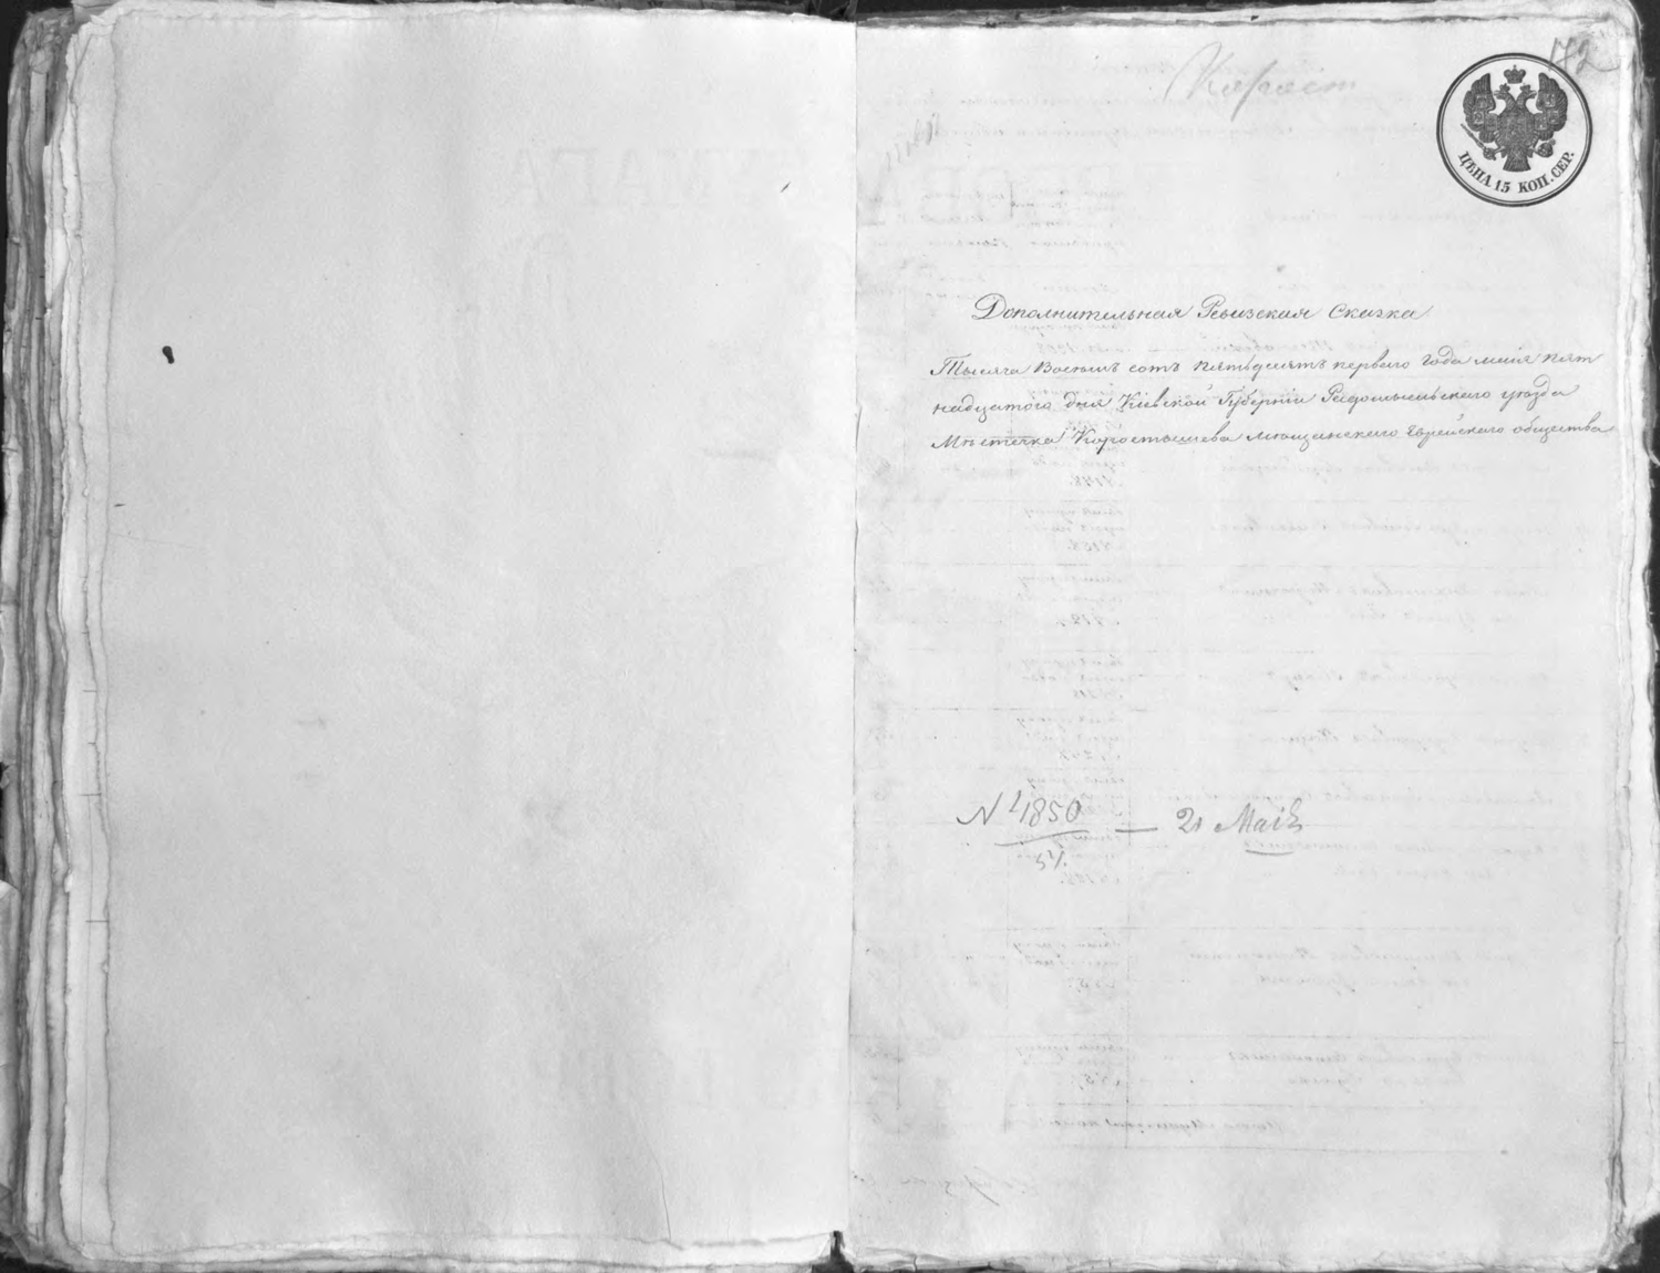 172
Корост
ЦѢНА 15 КОП. СЕР.
Дополнительная Ревизская Сказка
Тысяча Восемь сотъ пятьдесятъ перваго года маія пят
надцатого дня Кіевской Губерніи Радомысльскаго уѣзда
Мѣстечка Коростышева мѣщанскаго Еврейскаго общества
N 4850 — 21 Маія
51